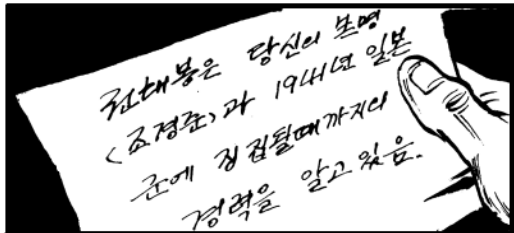 권대봉은 당신의 본명
<조경준>과 1944년 일본
군에 징집될때까지의
경력을 알고있음.